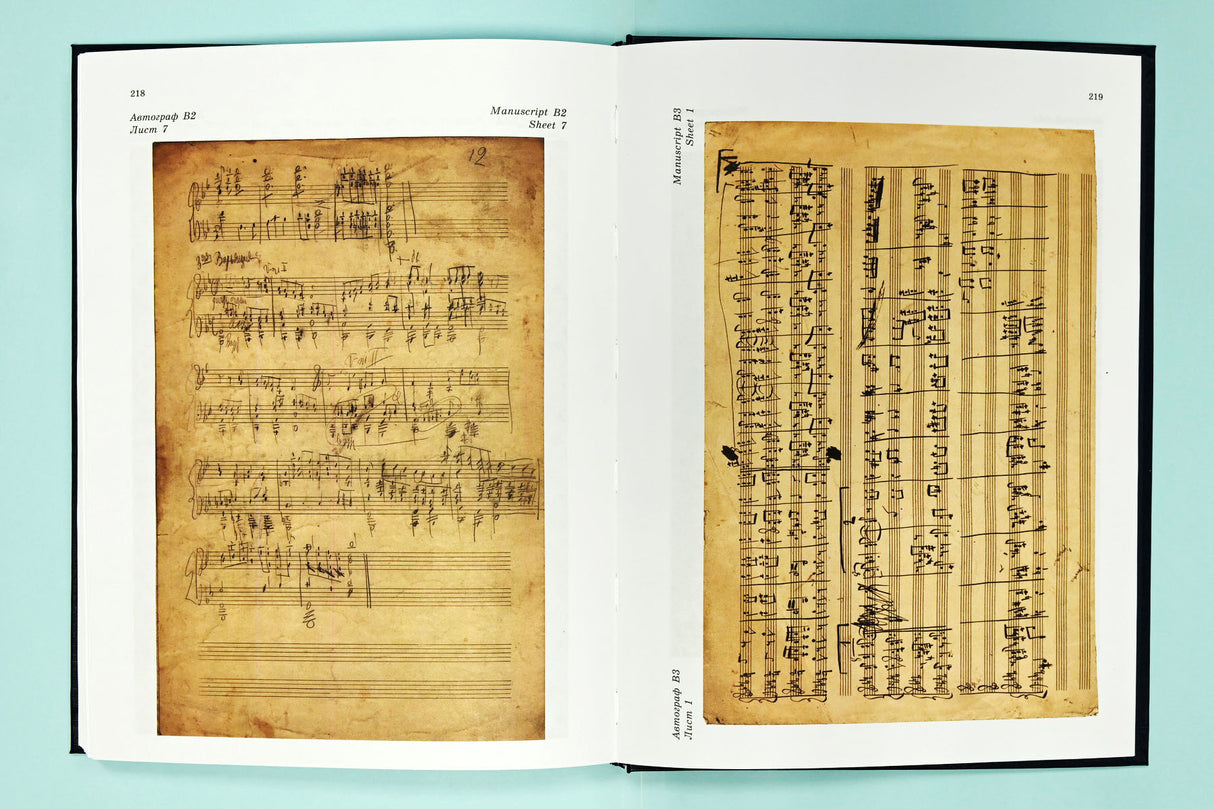 218
Автограф В2
Лист 7
Manuscript B2
Sheet 7
12
V-ni I
V-ni II
219
Manuscript B3
Sheet 1
Автограф В3
Лист 1